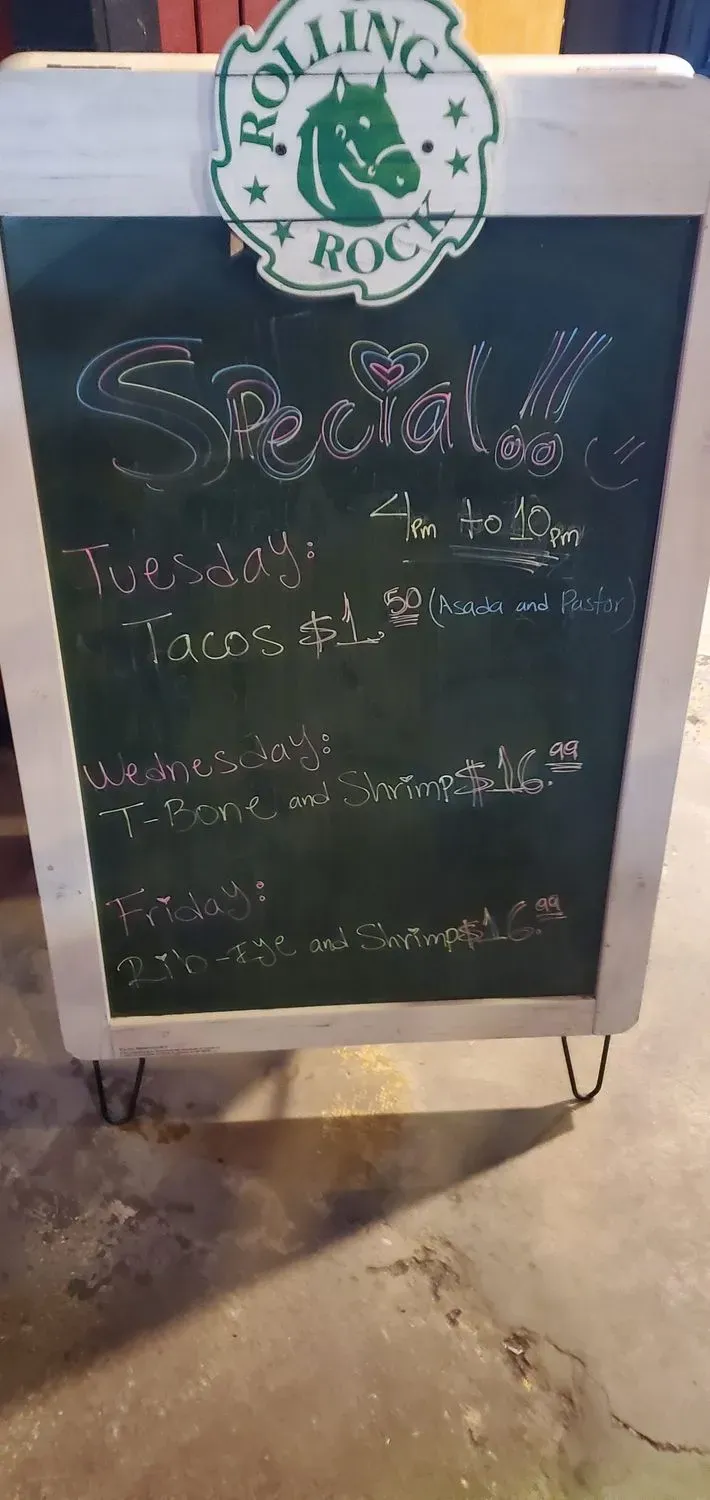 ROLLING
ROCK
Special!!!
4pm to 10pm
Tuesday:
Tacos $1.50 (Asada and Pastor)
Wednesday:
T-Bone and Shrimp $16.99
Friday:
Rib-Eye and Shrimp $16.99